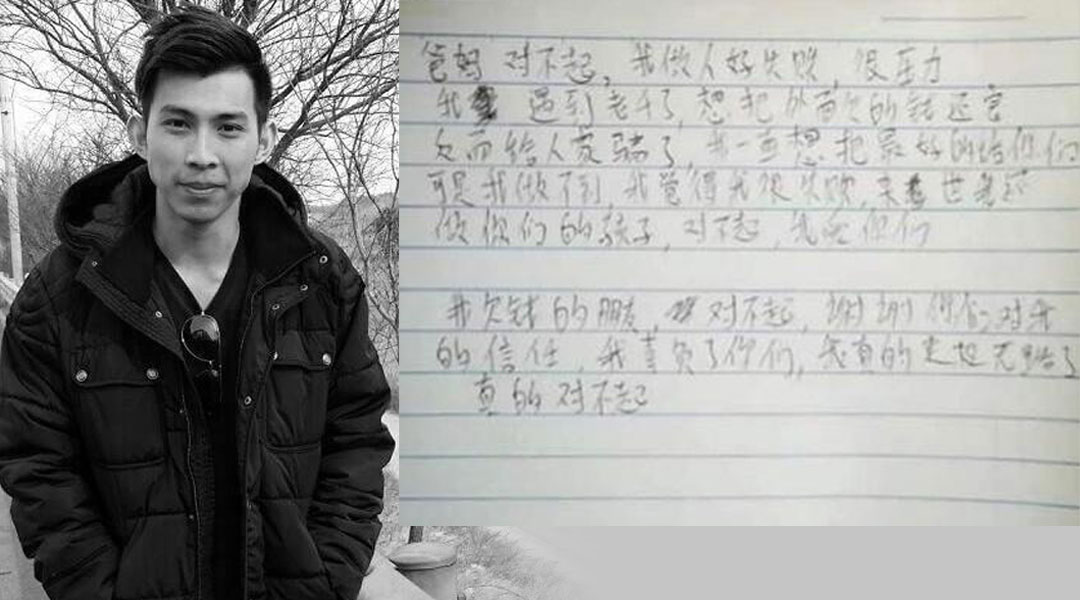 爸妈 对不起，我做人好失败，很压力
我 遇到老千了，想把外面欠的钱还完
反而给人家骗了，我一直想把最好的给你们
可是我做不到，我觉得我很失败，来世我还
做你们的孩子，对不起，我爱你们
我欠钱的朋友， 对不起，谢谢你们对我
的信任，我辜负了你们，我真的走投无路了
真的对不起